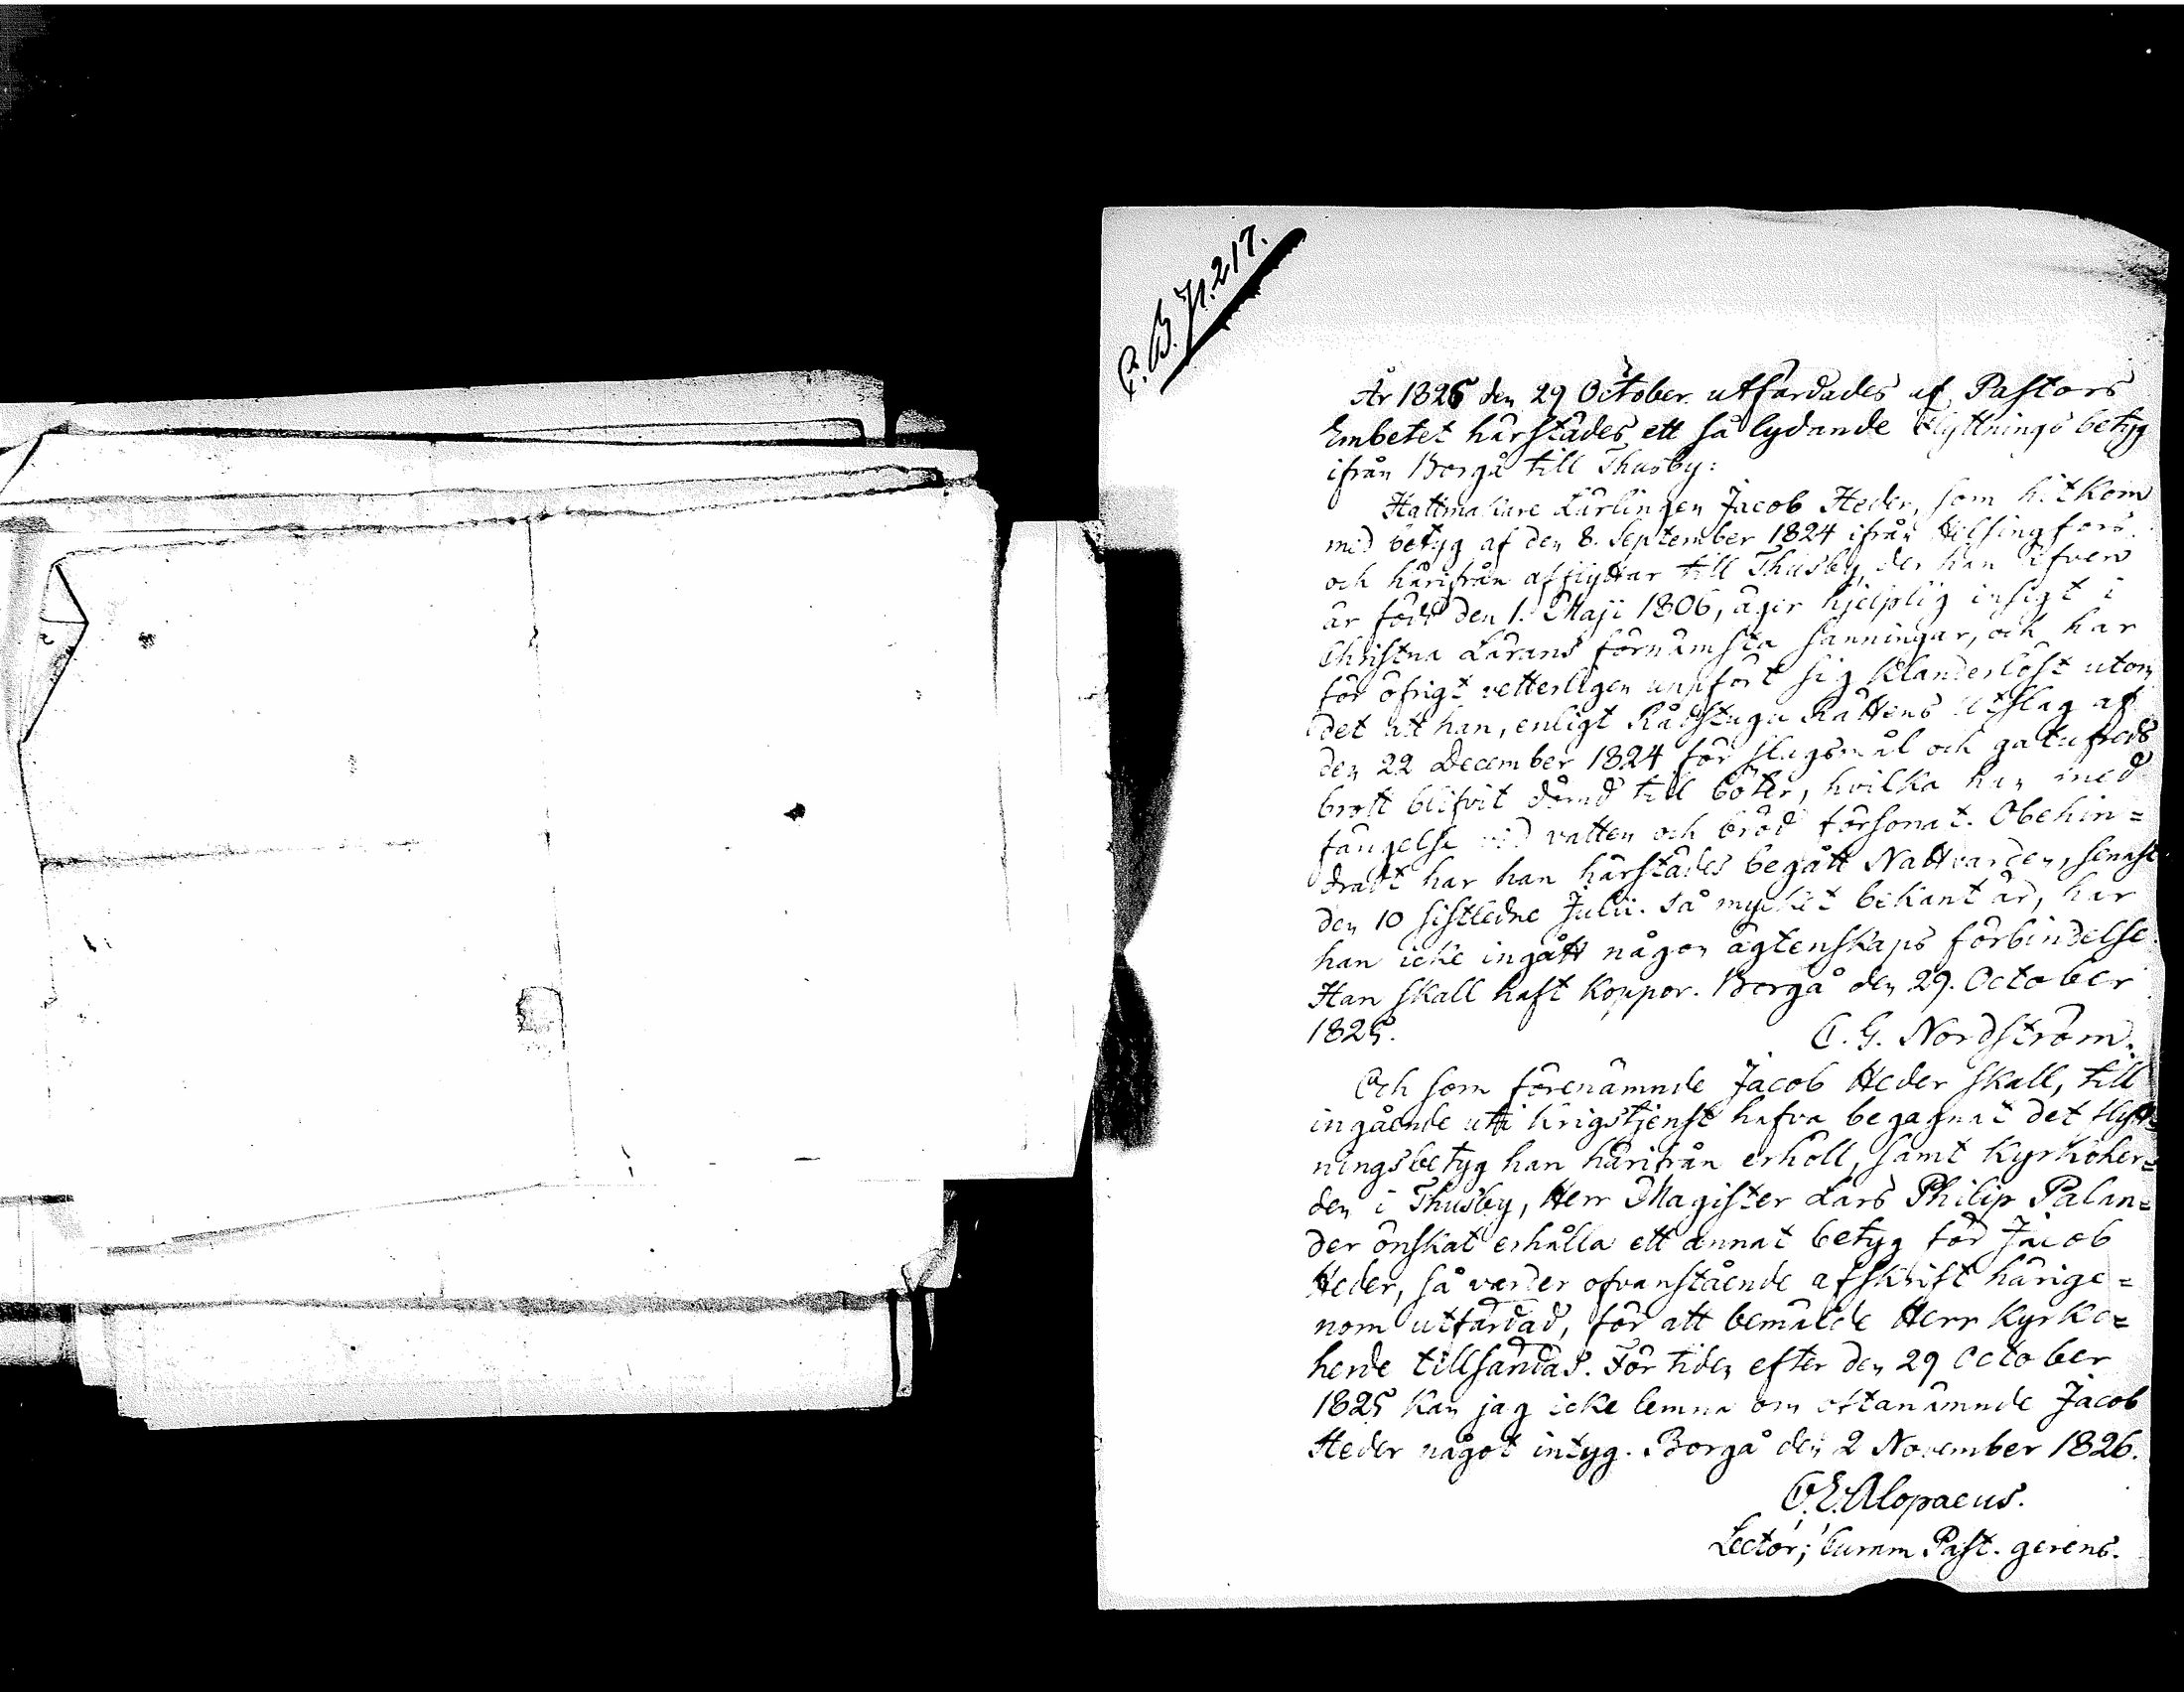 C. B. p. 217.
År 1825 den 29 October utfärdades af Pastors
Embetet härstädes ett så lydande Flyttnings betyg
ifrån Borgå till Thusby:
Hattmakare Lärlingen Jacob Heder, som hitkom
med betyg af den 8. September 1824 ifrån Helsingfors
och härifrån afflyttar till Thusby, der han äfven
är född den 1. Maji 1806, äger hjelplig insigt i
Christna Lärans förnämsta sanningar, och har
för öfrigt vetterligen uppfört sig klanderlöst utom
det att han, enligt Rådstugu Rättens Utslag af
den 22 December 1824 för slagsmål och gatufreds
brott blifvit dömd till böter, hvilka han med
fängelse vid vatten och bröd försonat. Obehin=
dradt har han härstädes begått Nattvarden, senast
den 10 sistledne Julii. Så mycket bekant är, har
han icke ingått någon ägtenskaps förbindelse.
Han skall haft koppor. Borgå den 29. October
1825.
C. G. Nordström.
Och som förenämnde Jacob Heder skall, till
ingående uti Krigstjenst hafva begagnat det flytt=
ningsbetyg han härifrån erhöll, samt Kyrkoher=
den i Thusby, Herr Magister Lars Philip Palan=
der önskat erhålla ett annat betyg för Jacob
Heder, så varder ofvanstående afskrift härige=
nom utfärdad, för att bemälde Herr Kyrko=
herde tillsändas. För tiden efter den 29 October
1825 kan jag icke lemna om oftanämnde Jacob
Heder något intyg. Borgå den 2 November 1826.
C. E. Alopaeus.
Lector, Curam Past. gerens.